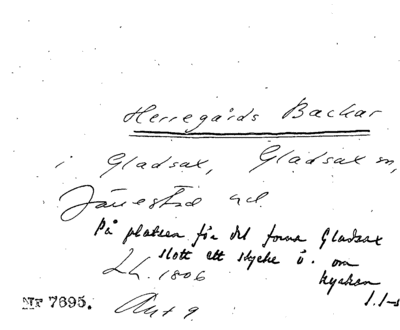 Herregårds Backar
i Gladsax, Gladsax sn,
Järrestad hd
På platsen för det forna Gladsax
slott ett stycke ö. om
kyrkan
Lh. 1806
Ant 9
Nr 7695.